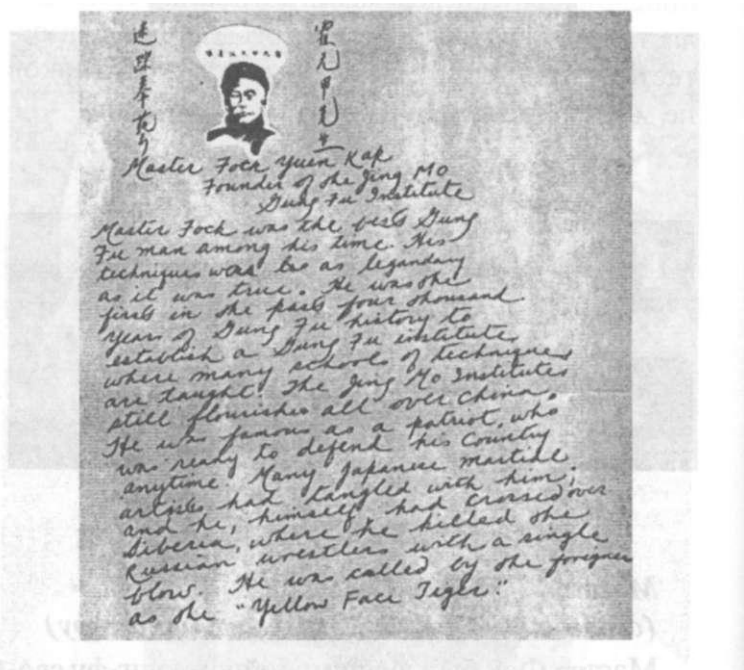 霍元甲先生
Master Fock Yuen Kap
Founder of the Jing Mo
Gung Fu Institute
Master Fock was the best Gung
Fu man among his time. His
techniques was as legendary
as it was true. He was the
first in the past four thousand
years of Gung Fu history to
establish a Gung Fu institute
where many schools of techniques
are taught. The Jing Mo Institutes
still flourishes all over China.
He was famous as a patriot, who
was ready to defend his country
anytime. Many Japanese martial
artists had tangled with him;
and he, himself had crossed over
Siberia, where he killed the
Russian wrestlers with a single
blow. He was called by the foreigner
as the "Yellow Face Tiger."